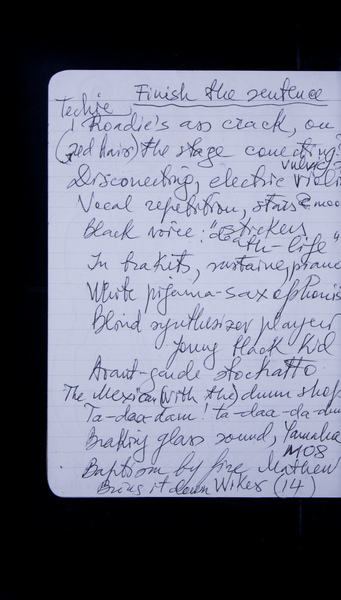 Finish the sentence
Techie,
Roadie's ass crack, on
(red hairs) the stage conecting?
Disconecting, electric violi
Vocal repetition, stars & moo
Black voice: "strickers
death-life"
In brakets, sustaine,
White pijama-saxophonis
Blind synthesizer player
Young black kid
Avant-garde stockatto
The Mexican (with the) drum shop
Ta-daa-dam! ta-daa-da-dam
glass sound, Yamaha
MO8
Baptism by fire Mathew
Bring it down Wikes (14)